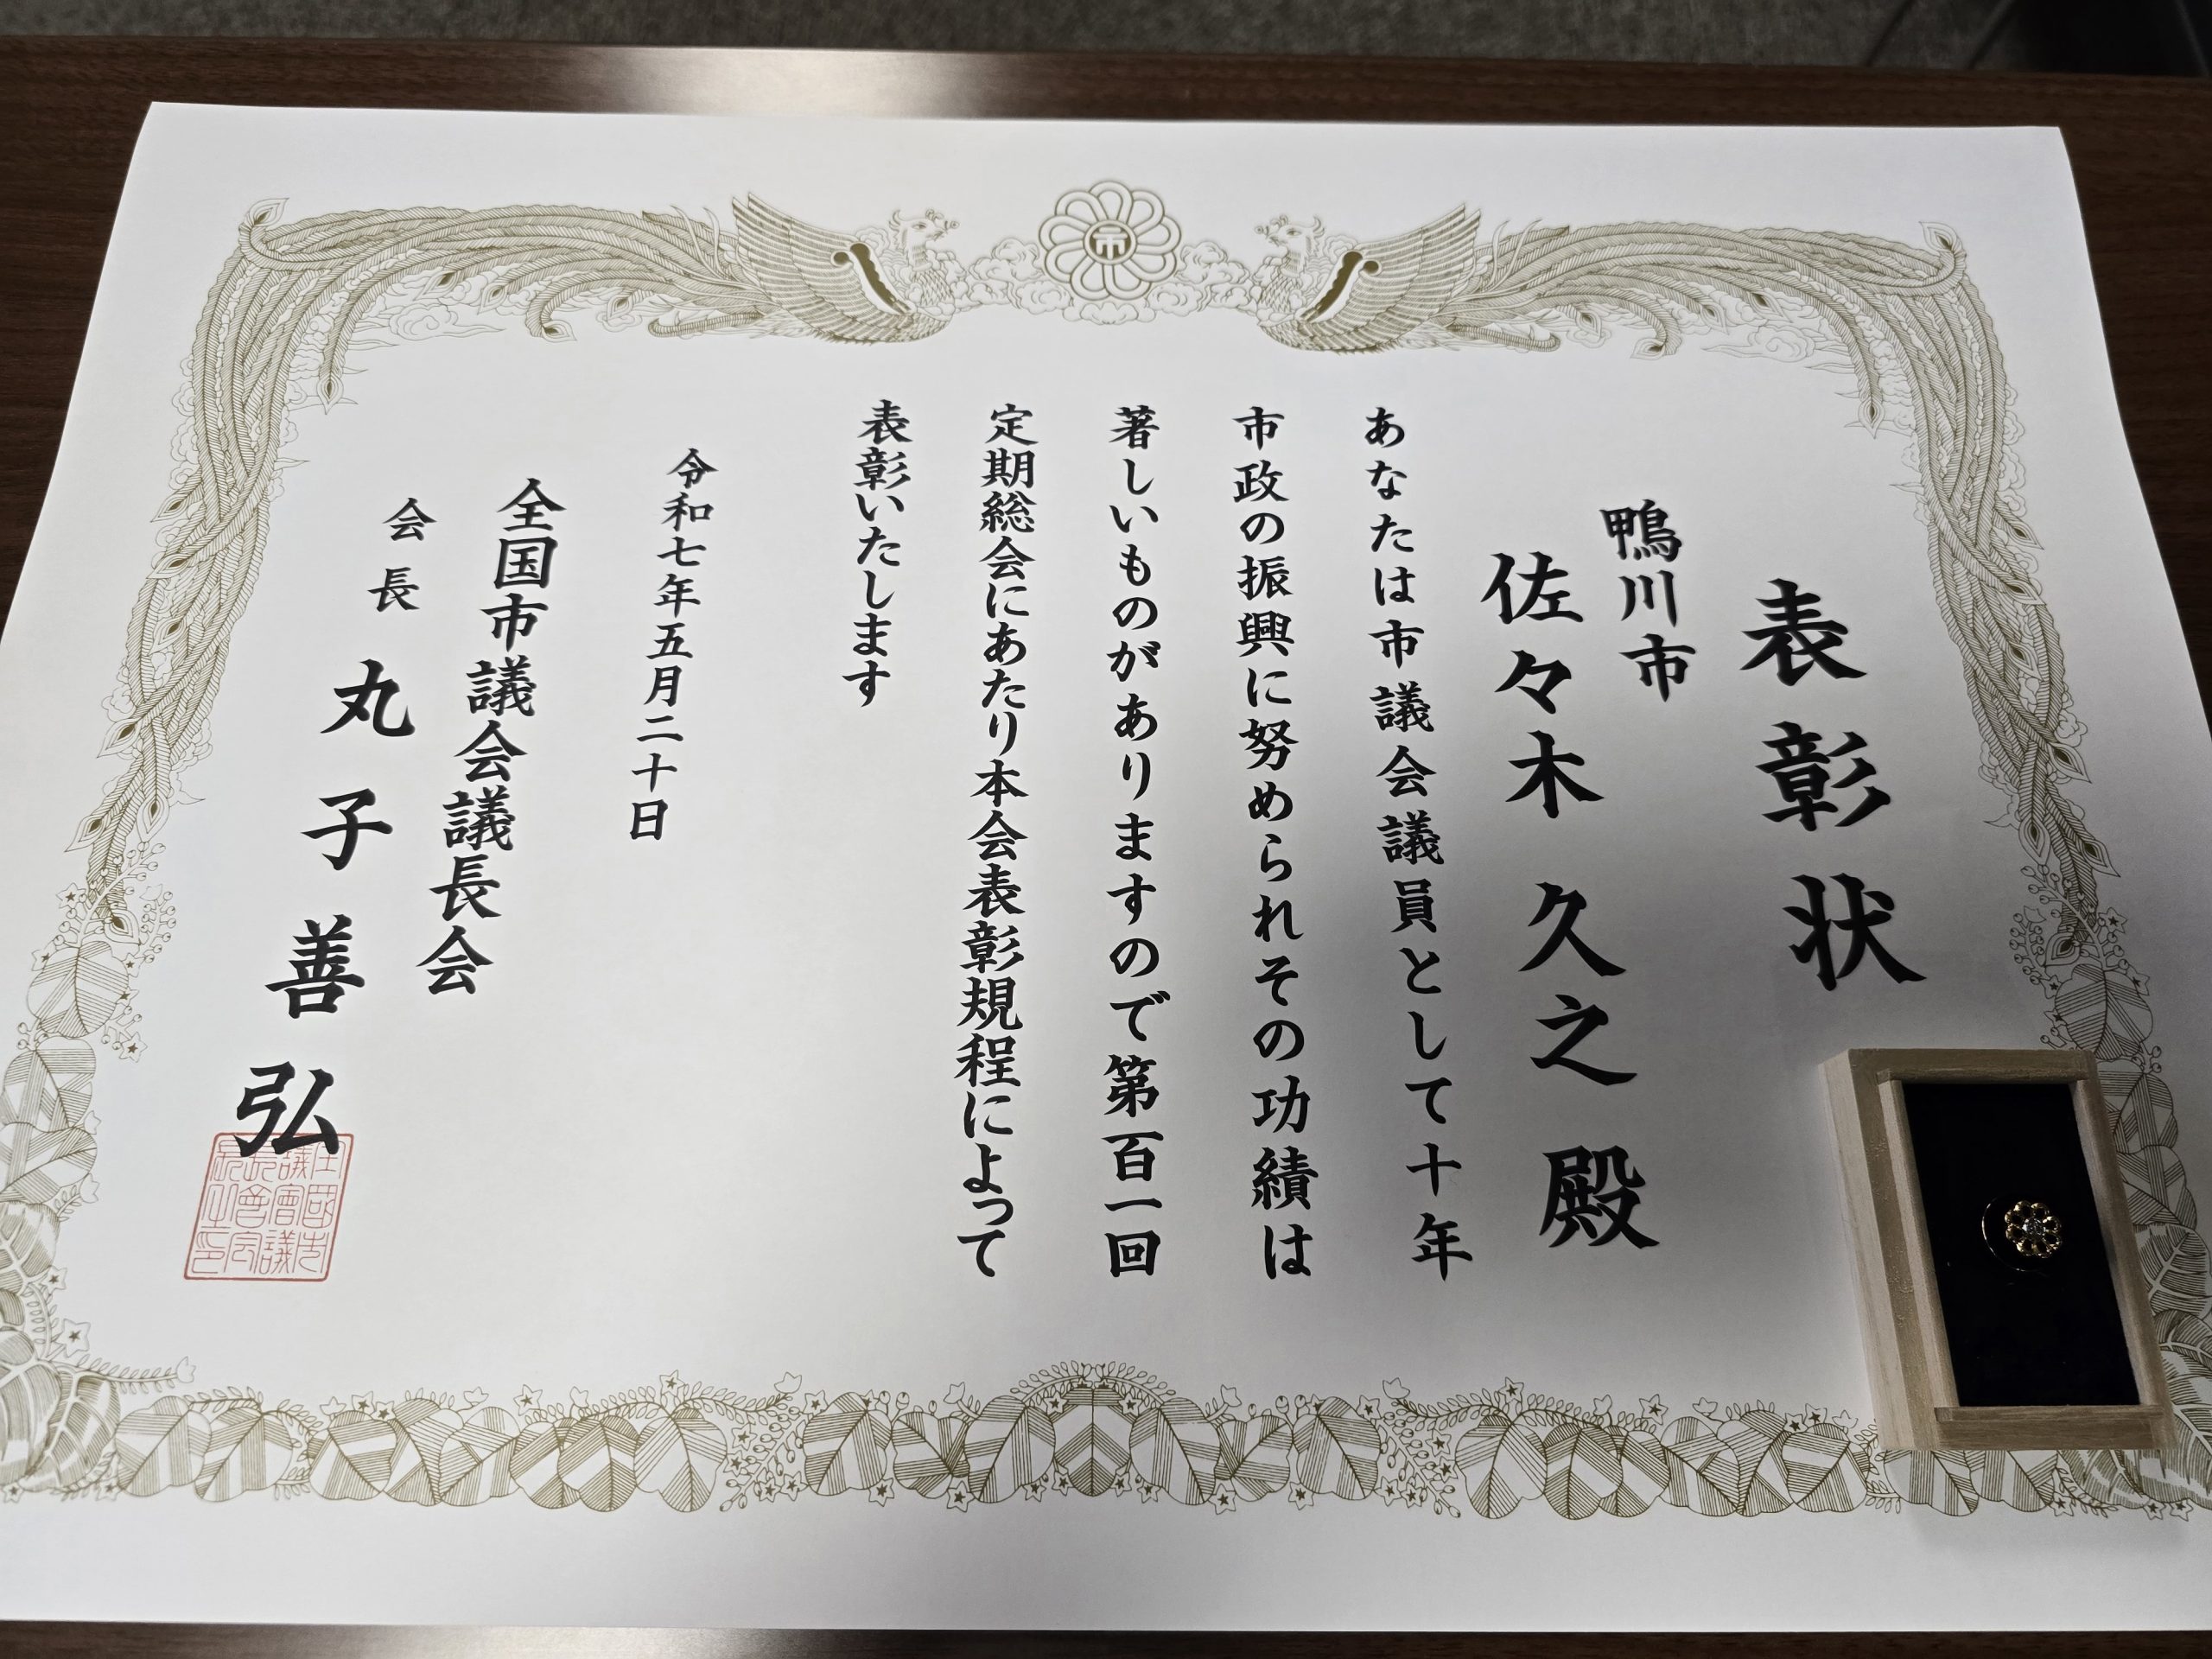 表彰状
鴨川市
佐々木久之殿
あなたは市議会議員として十年
市政の振興に努められその功績は
著しいものがありますので第百一回
定期総会にあたり本会表彰規程によって
表彰いたします
令和七年五月二十日
全国市議会議長会
会長 丸子善弘
市